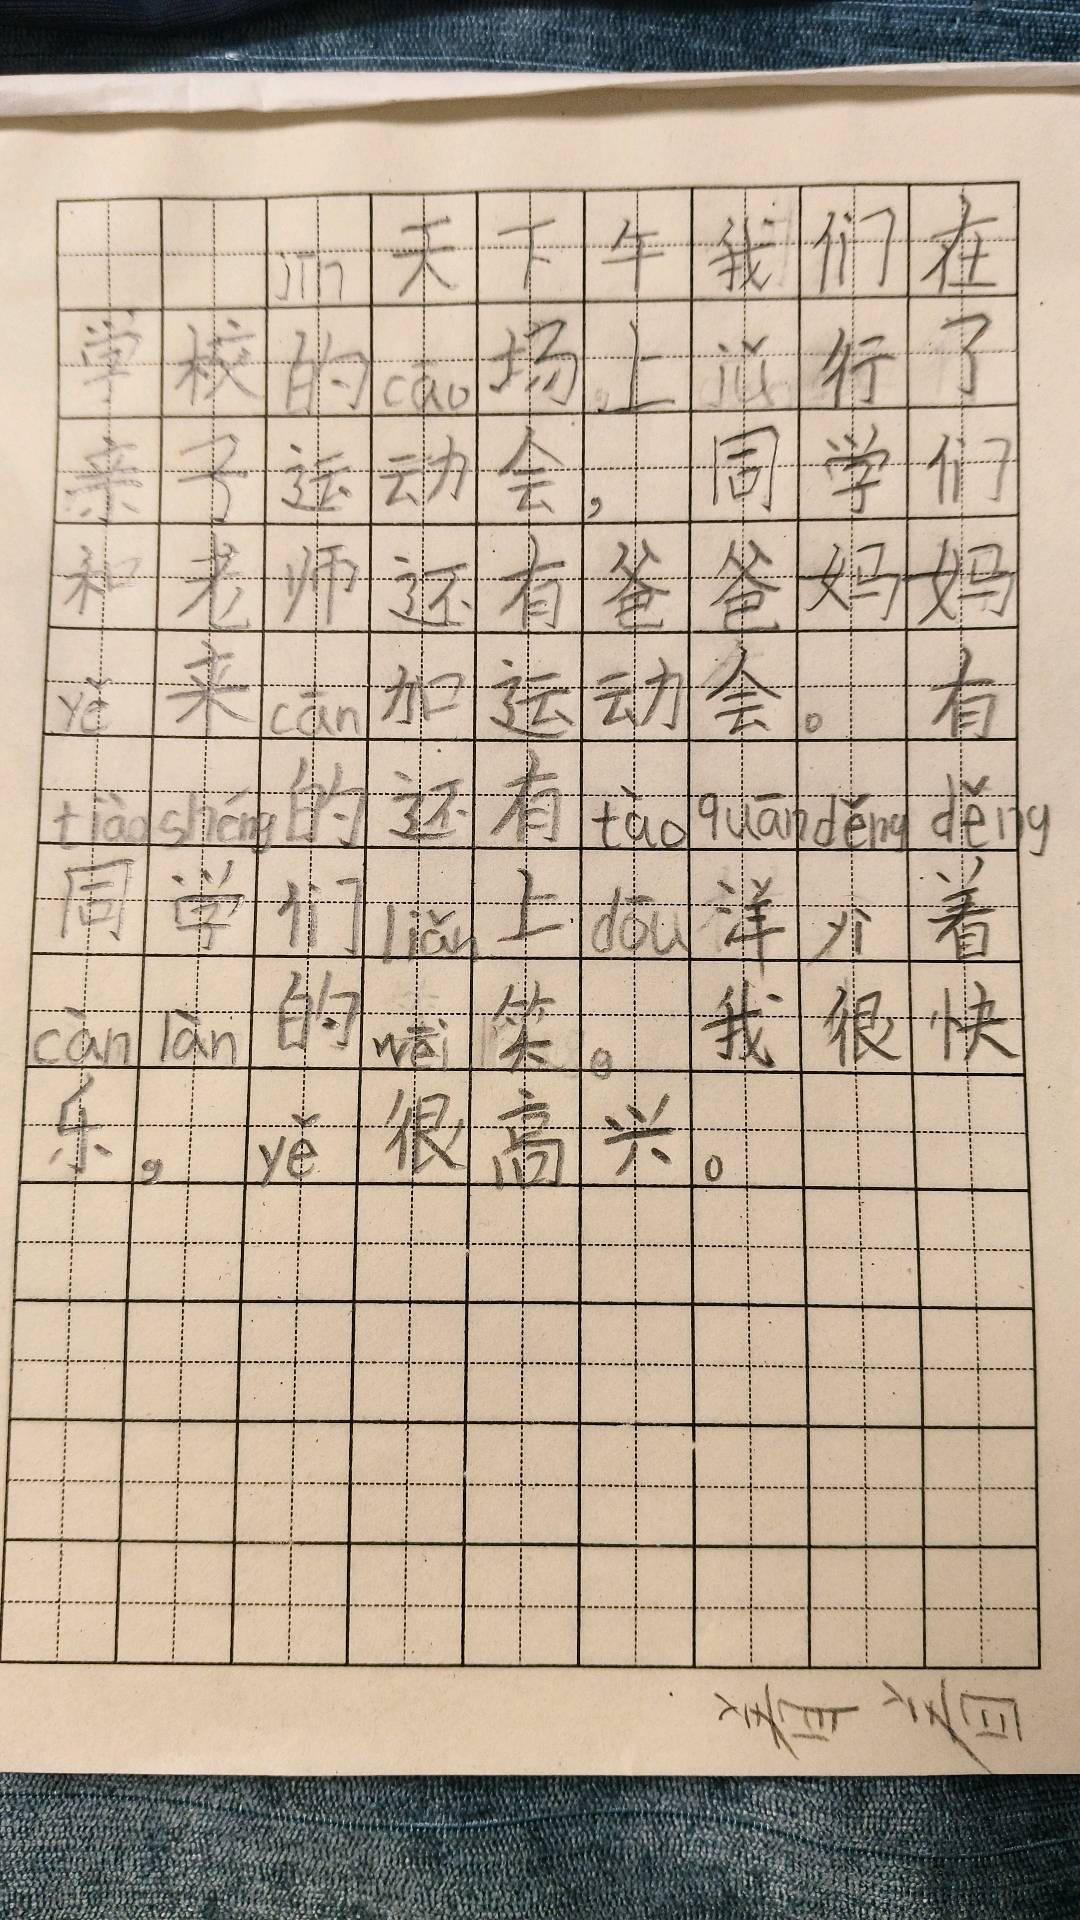 jīn天下午我们在
学校的cāo场上jǔ行了
亲子运动会，同学们
和老师还有爸爸妈妈
yě来cān加运动会。有
tiàoshéng的还有tàoquānděngděng
同学们liǎn上dōu洋yì着
cànlàn的wēi笑。我很快
乐，yě很高兴。